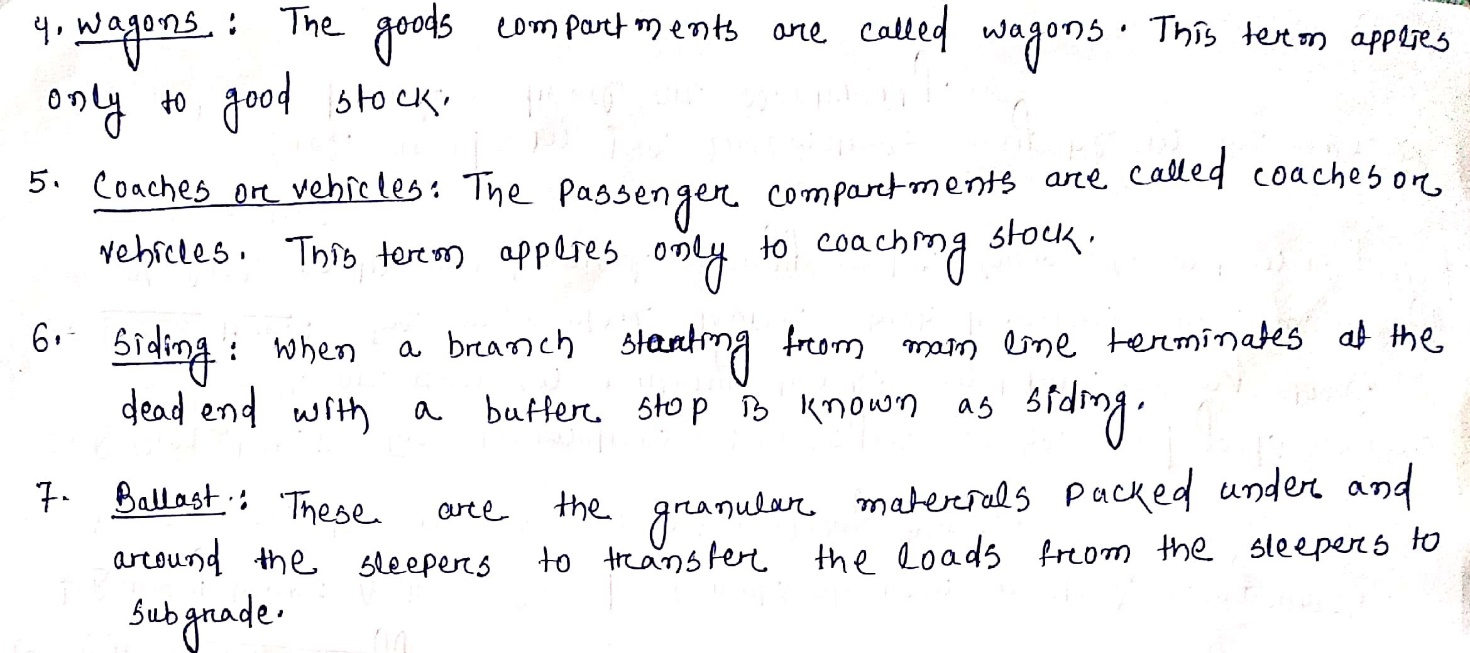 4. Wagons : The goods compartments are called wagons. This term applies
only to good stock.
5. Coaches or vehicles : The Passenger compartments are called coaches or
vehicles. This term applies only to coaching stock.
6. Siding : When a branch starting from main line terminates at the
dead end with a buffer stop is known as siding.
7. Ballast : These are the granular materials packed under and
around the sleepers to transfer the loads from the sleepers to
subgrade.